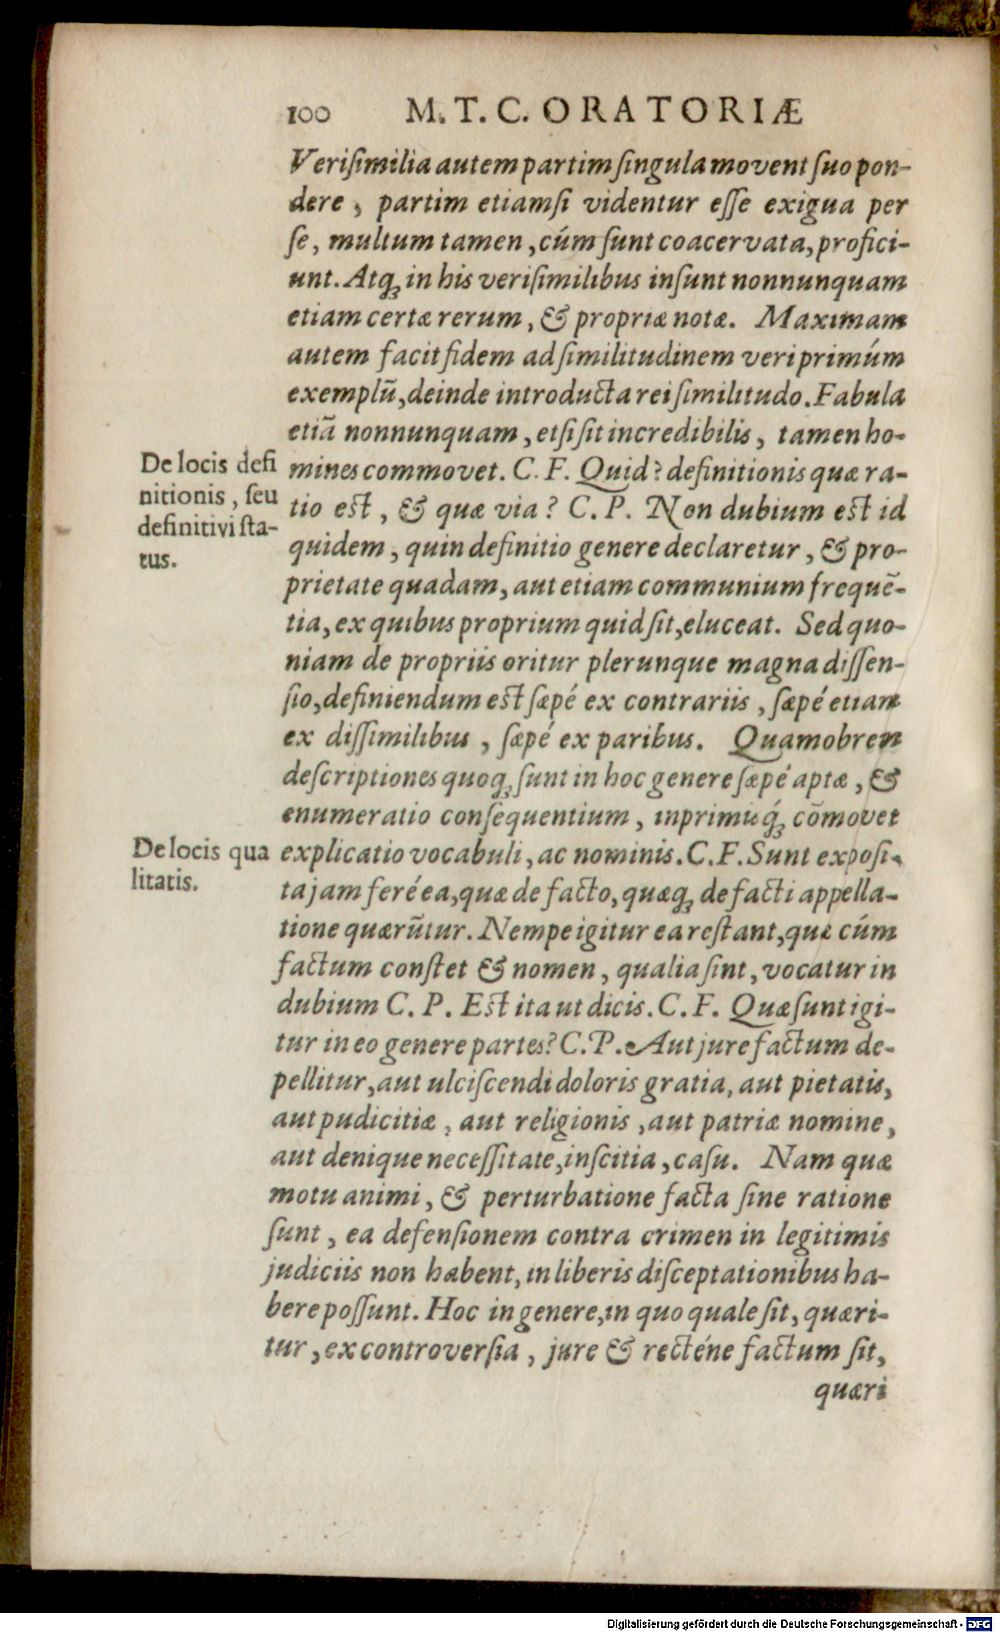 100 M. T. C. ORATORIÆ
Veriſimilia autem partim ſingula movent ſuo pon-
dere, partim etiamſi videntur eſſe exigua per
ſe, multum tamen, cúm ſunt coacervata, profici-
unt. Atq́ꝫ in his veriſimilibus inſunt nonnunquam
etiam certæ rerum, & propriæ notæ. Maximam
autem facit fidem ad ſimilitudinem veri primúm
exemplū, deinde introducta rei ſimilitudo. Fabula
etiā nonnunquam, etſi ſit incredibilis, tamen ho-
mines commovet. C. F. Quid? definitionis quæ ra-
De locis defi
nitionis, ſeu
definitivi ſta-
tus.
tio est, & quæ via? C. P. Non dubium est id
quidem, quin definitio genere declaretur, & pro-
prietate quadam, aut etiam communium frequē-
tia, ex quibus proprium quid ſit, eluceat. Sed quo-
niam de propriis oritur plerunque magna diſſen-
ſio, definiendum est ſæpé ex contrariis, ſæpé etiam
ex diſſimilibus, ſæpé ex paribus. Quamobrem
deſcriptiones quoqꝫ ſunt in hoc genere ſæpé aptæ, &
enumeratio conſequentium, inprimisq́ꝫ cōmovet
De locis qua
litatis.
explicatio vocabuli, ac nominis. C. F. Sunt expoſi-
ta jam feré ea, quæ de facto, quæqꝫ de facti appella-
tione quærūtur. Nempe igitur ea reſtant, quæ cúm
factum conſtet & nomen, qualia ſint, vocatur in
dubium C. P. Est ita ut dicis. C. F. Quæ ſunt igi-
tur in eo genere partes? C. P. Aut jure factum de-
pellitur, aut ulciſcendi doloris gratia, aut pietatis,
aut pudicitiæ, aut religionis, aut patriæ nomine,
aut denique neceſſitate, inſcitia, caſu. Nam quæ
motu animi, & perturbatione facta ſine ratione
ſunt, ea defenſionem contra crimen in legitimis
judiciis non habent, in liberis diſceptationibus ha-
bere poſſunt. Hoc in genere, in quo quale ſit, quæri-
tur, ex controverſia, jure & recténe factum ſit,
quæri
Digitalisierung gefördert durch die Deutsche Forschungsgemeinschaft - DFG